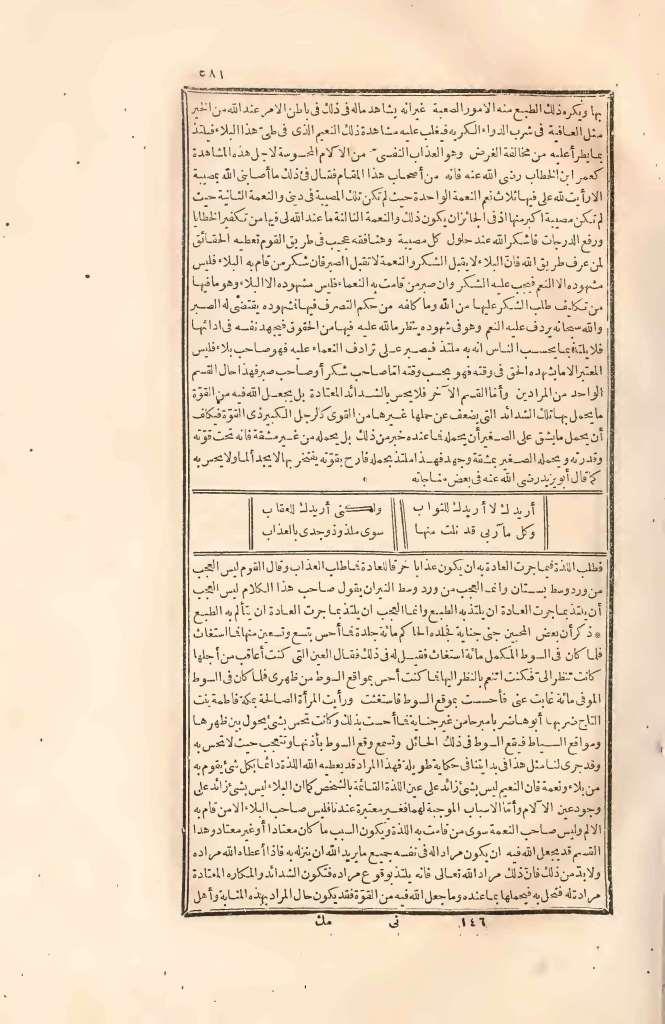 ١٨٢
بها ويكره ذلك الطبع منه الامور الصعبة غير انه يشاهد ماله في ذلك في باطن الامر عند الله من الخير
مثل العافية في شرب الدواء الكريه فيغلب عليه مشاهدة ذلك النعيم الذى في طىّ هذا البلاء فيلتذ
بما يطرأ عليه من مخالفة الغرض وهو العذاب النفسىّ من الآلام المحسوسة لاجل هذه المشاهدة
كعمر ابن الخطاب رضى الله عنه فانه من أصحاب هذا المقام فقال في ذلك ما أصابنى الله بمصيبة
الا رأيت لله على فيها ثلاث نعم النعمة الواحدة حيث لم تكن تلك المصيبة في دينى والنعمة الثانية حيث
لم تكن مصيبة اكبر منها اذ في الجائز ان يكون ذلك والنعمة الثالثة ما عند الله لى فيها من تكفير الخطايا
ورفع الدرجات فاشكر الله عند حلول كل مصيبة وهنا فقه عجيب في طريق القوم تعطيه الحقائق
لمن عرف طريق الله فانّ البلاء لا يقبل الشكر والنعمة لا تقبل الصبر فان شكر من قام به البلاء فليس
مشهوده الا النعم فيجب عليه الشكر وان صبر من قامت به النعماء فليس مشهوده الا البلاء وهو ما فيها
من تكليف طلب الشكر عليها من الله وما كلفه من حكم التصرف فيها فشهوده يقتضى له الصبر
والله سبحانه يردف عليه النعم وهو في شهوده ينظر ما لله عليه فيها من الحقوق فيجهد نفسه في ادائها
فلا يلتذ بما يحسب الناس انه به ملتذ فيصبر على ترادف النعماء عليه فهو صاحب بلاء فليس
المعتبر الا ما يشهده الحق في وقته فهو بحسب وقته امّا صاحب شكر أو صاحب صبر فهذا حال القسم
الواحد من المرادين وأمّا القسم الآخر فلا يحس بالشدائد المعتادة بل يجعل الله فيه من القوّة
ما يحمل بها تلك الشدائد التى يضعف عن حملها غيرها من القوى كالرجل الكبير ذى القوّة فيكلف
أن يحمل ما يشق على الصغير أن يحمله فما عنده خبر من ذلك بل يحمله من غير مشقة فانه تحت قوّته
وقدرته ويحمله الصغير بمشقة وجهد فهذا ملتذ بحمله فارح بقوّته يفتخر بها لا يجد ألما ولا يحس به
كما قال أبو يزيد رضى الله عنه في بعض مناجاته
أريدك لا أريدك للثواب ولكنى أريدك للعقاب
وكل مآربى قد نلت منها سوى ملذوذ وجدى بالعذاب
فطلب اللذة فيما جرت العادة به ان يكون عذابا خرقا للعادة فما طلب العذاب وقال القوم ليس العجب
من ورد وسط بستان وانما العجب من ورد وسط النيران يقول صاحب هذا الكلام ليس العجب
أن يلتذ بما جرت العادة ان يلتذ به الطبع وانما العجب ان يلتذ بما جرت العادة ان يتألم به الطبع
* ذكر أن بعض المحبين جنى جناية فجلده الحاكم مائة جلدة فما أحس بتسع وتسعين منها فما استغاث
فلما كان في السوط المكمل مائة استغاث فقيل له في ذلك فقال العين التى كنت أعاقب من أجلها
كانت تنظر الىّ فكنت اتنعم بالنظر اليها فما كنت أحس بمواقع السوط من ظهرى فلما كان في السوط
الموفى مائة غابت عنى فأحسست بموقع السوط فاستغثت ورأيت المرأة الصالحة بمكة فاطمة بنت
التاج ضربها أبوها ضربا مبرحا من غير جناية فما أحست بذلك وكانت تحس بشئ يحول بين ظهرها
ومواقع السياط فيقع السوط في ذلك الحائل وتسمع وقع السوط بأذنها وتتعجب حيث لا تحس به
وقد جرى لنا مثل هذا في بدايتنا في حكاية طويلة فهذا المراد قد يعطيه الله اللذة دائما بكل شئ يقوم به
من بلاء ونعمة فان النعيم ليس بشئ زائد على عين اللذة القائمة بالشخص كما ان البلاء ليس بشئ زائد على
وجود عين الآلام وأمّا الاسباب الموجبة لهما فغير معتبرة عندنا فليس صاحب البلاء الا من قام به
الالم وليس صاحب النعمة سوى من قامت به اللذة ويكون السبب ما كان معتادا أو غير معتاد وهذا
القسم قد يجعل الله فيه ان يكون مرادا له في نفسه جميع ما يريد الله ان ينزله به فاذا أعطاه الله مراده
ولا بدّ من ذلك فانّ ذلك مراد الله تعالى فانه يلتذ بوقوع مراده فتكون الشدائد والمكاره المعتادة
مرادة له فتحل به فيحملها بما عنده وما جعل الله فيه من القوّة فقد يكون حال المراد بهذه المثابة وأهل
١٤٦ نى مك